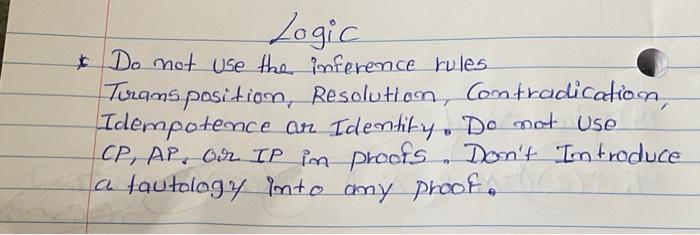 Logic
* Do not use the inference rules
Transposition, Resolution, Contradication,
Idempotence or Identity. Do not use
CP, AP, or IP in proofs. Don't Introduce
a tautology into any proof.